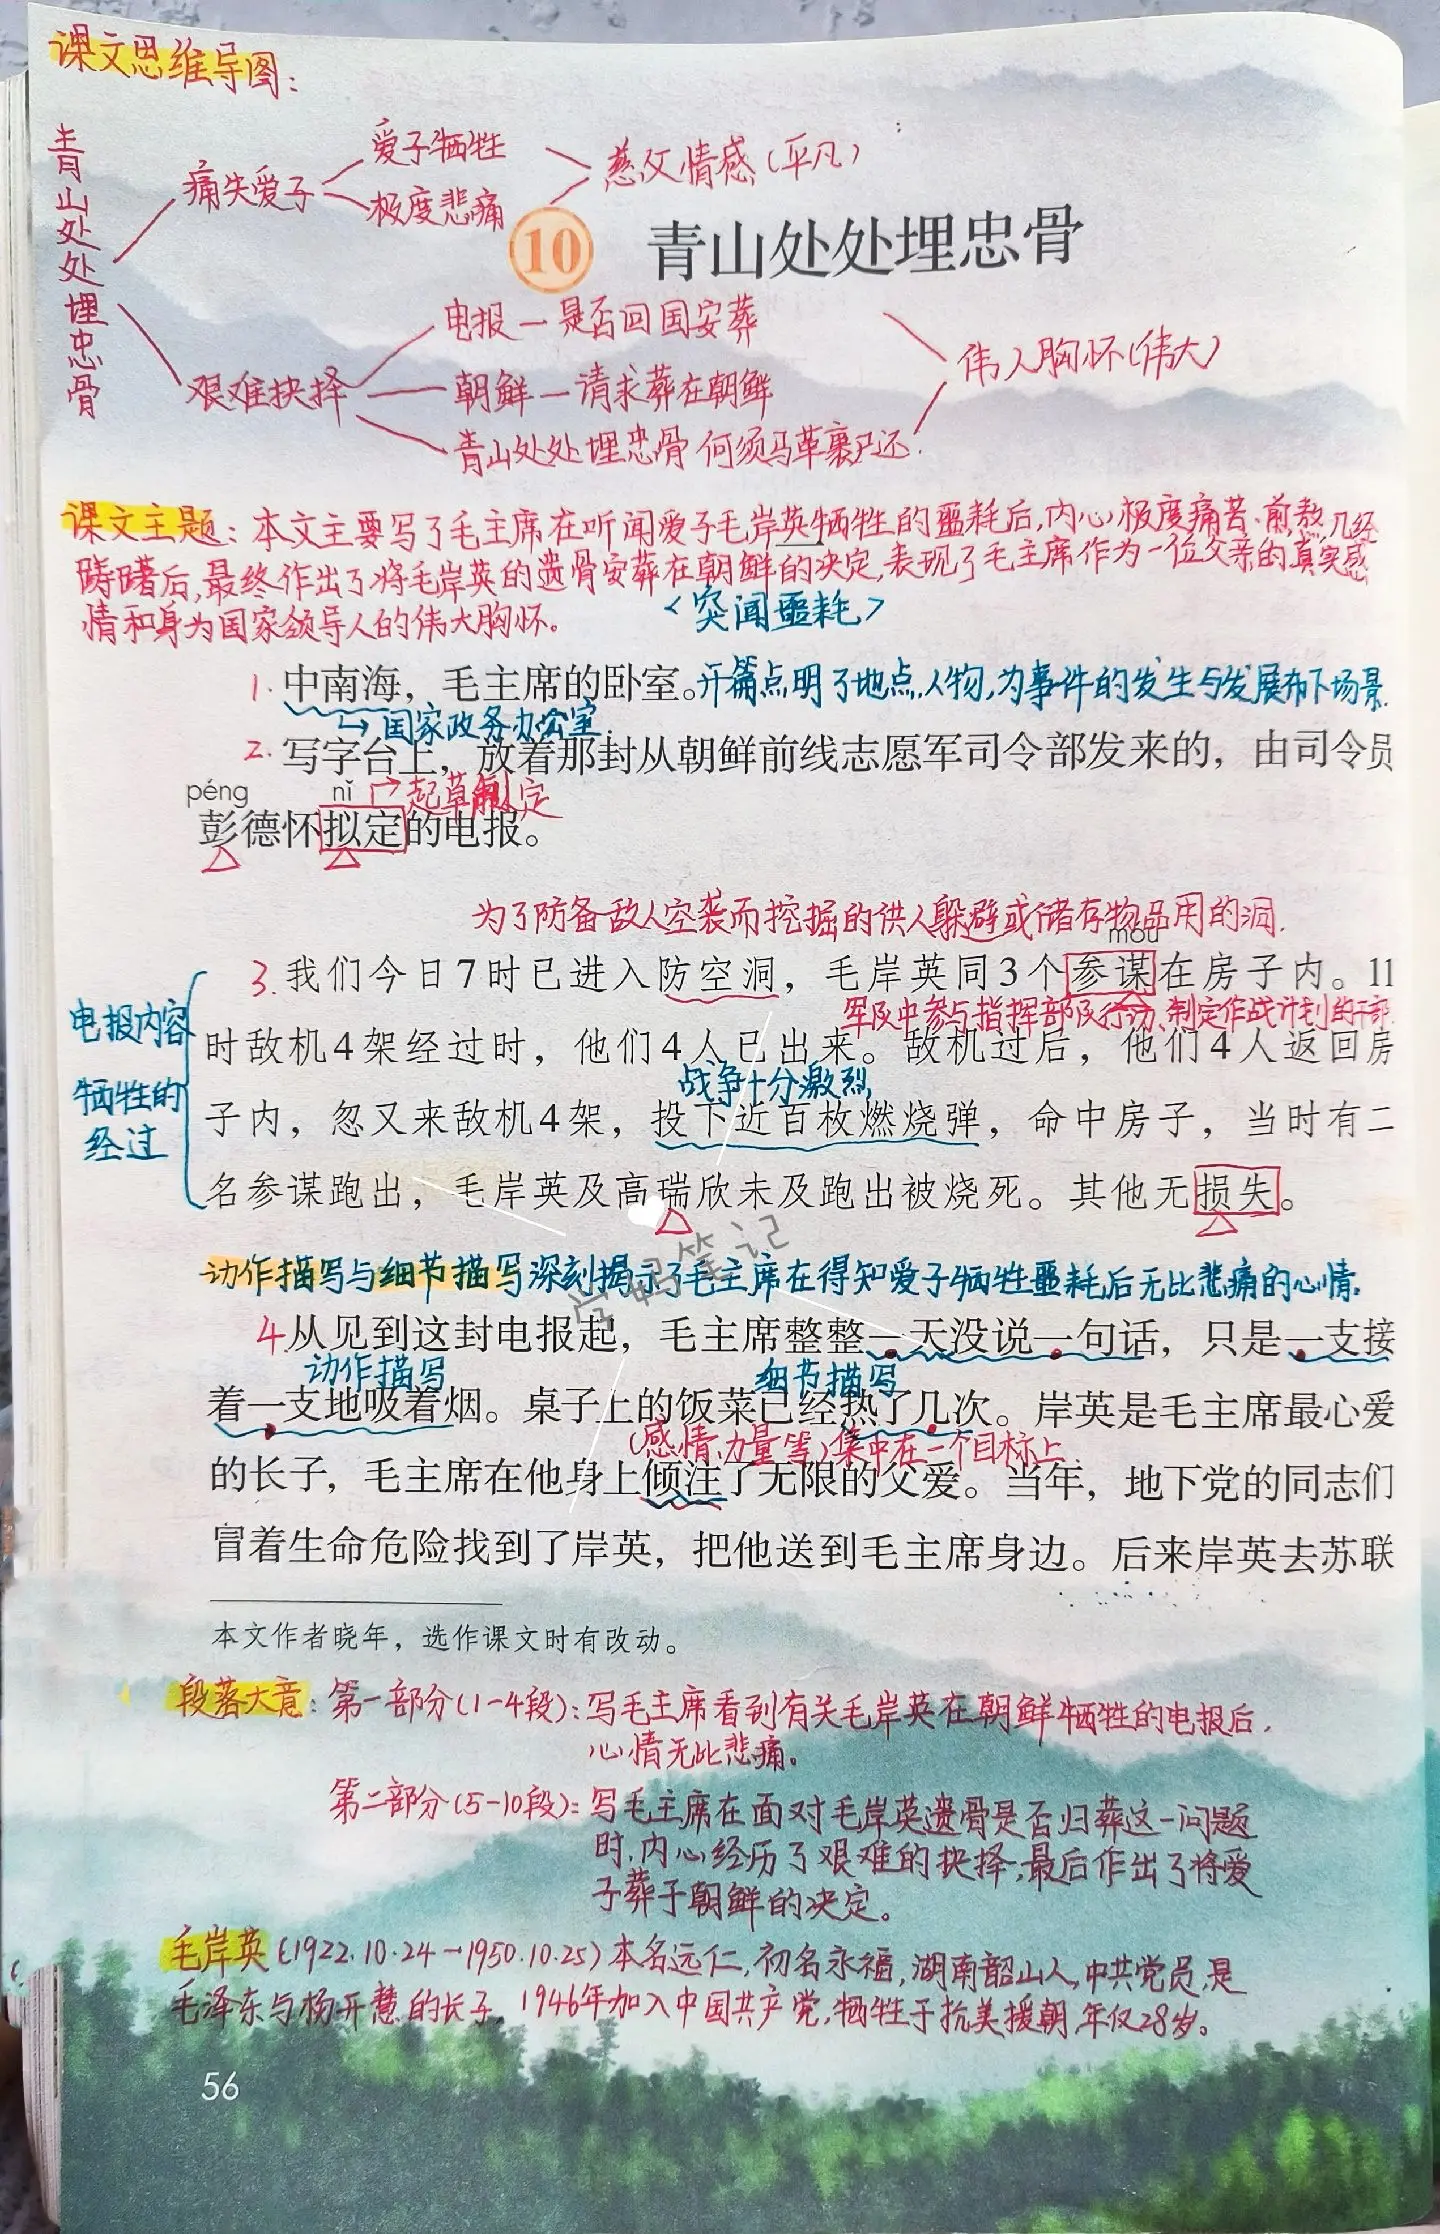 课文思维导图：
青山处处埋忠骨
痛失爱子
爱子牺牲
极度悲痛
慈父情感(平凡)
10 青山处处埋忠骨
艰难抉择
电报—是否回国安葬
朝鲜—请求葬在朝鲜
青山处处埋忠骨 何须马革裹尸还.
伟人胸怀(伟大)
课文主题：本文主要写了毛主席在听闻爱子毛岸英牺牲的噩耗后,内心极度痛苦.煎熬,几经
踌躇后,最终作出了将毛岸英的遗骨安葬在朝鲜的决定,表现了毛主席作为一位父亲的真实感
情和身为国家领导人的伟大胸怀。
<突闻噩耗>
1. 中南海，毛主席的卧室。开篇点明了地点,人物,为事件的发生与发展布下场景.
→国家政务办公室.
2. 写字台上，放着那封从朝鲜前线志愿军司令部发来的，由司令员
péng nǐ →起草制定
彭德怀拟定的电报。
为了防备敌人空袭而挖掘的供人躲避或储存物品用的洞.
móu
3. 我们今日7时已进入防空洞，毛岸英同3个参谋在房子内。11
军队中参与指挥部队行动、制定作战计划的干部.
电报内容
牺牲的
经过
时敌机4架经过时，他们4人已出来。敌机过后，他们4人返回房
战争十分激烈
子内，忽又来敌机4架，投下近百枚燃烧弹，命中房子，当时有二
名参谋跑出，毛岸英及高瑞欣未及跑出被烧死。其他无损失。
学鸭笔记
动作描写与细节描写深刻揭示了毛主席在得知爱子牺牲噩耗后无比悲痛的心情.
4从见到这封电报起，毛主席整整一天没说一句话，只是一支接
动作描写 细节描写
着一支地吸着烟。桌子上的饭菜已经热了几次。岸英是毛主席最心爱
(感情、力量等)集中在一个目标上
的长子，毛主席在他身上倾注了无限的父爱。当年，地下党的同志们
冒着生命危险找到了岸英，把他送到毛主席身边。后来岸英去苏联
本文作者晓年，选作课文时有改动。
段落大意：第一部分(1-4段)：写毛主席看到有关毛岸英在朝鲜牺牲的电报后,
心情无比悲痛。
第二部分(5-10段)：写毛主席在面对毛岸英遗骨是否归葬这一问题
时,内心经历了艰难的抉择,最后作出了将爱
子葬于朝鲜的决定。
毛岸英(1922.10.24-1950.10.25)本名远仁,初名永福,湖南韶山人,中共党员,是
毛泽东与杨开慧的长子,1946年加入中国共产党,牺牲于抗美援朝,年仅28岁。
56